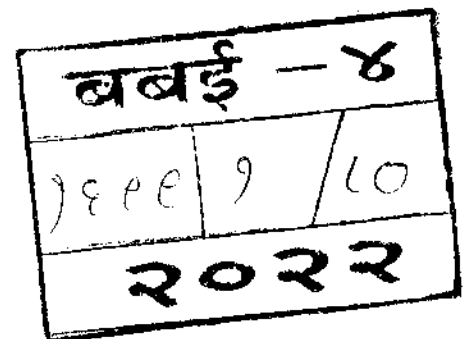 बबई - ४
१६९९ १ / ८०
२०२२